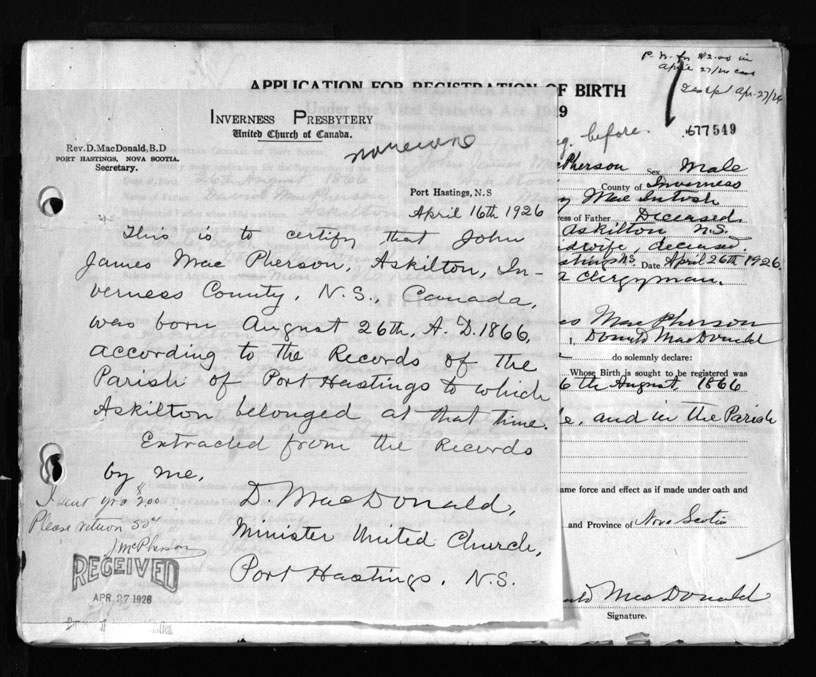 P. N. for $2.00 in
April 27/26
Apr. 27/26
APPLICATION FOR REGISTRATION OF BIRTH
Under the Vital Statistics Act
9
before.
677549
INVERNESS PRESBYTERY
United Church of Canada.
Rev. D. MacDonald, B.D
PORT HASTINGS, NOVA SCOTIA.
Secretary.
Port Hastings, N.S
April 16th 1926
This is to certify that John
James MacPherson, Askilton, In-
verness County, N.S., Canada,
was born August 26th, A.D. 1866,
according to the Records of the
Parish of Port Hastings to which
Askilton belonged at that time.
Extracted from the Records
by me,
D. MacDonald,
Minister United Church,
Port Hastings, N.S.
I sent you $2.00
Please return 50¢
J. McPherson
RECEIVED
APR. 27 1926
cPherson Sex Male
County of Inverness
y MacIntosh
ess of Father Deceased.
Askilton N.S.
idwife, deceased.
stings NS. Date April 26th 1926.
a Clergyman.
es MacPherson
I, Donald MacDonald
do solemnly declare:
Whose Birth is sought to be registered was
6th August, 1866
e, and in the Parish
ame force and effect as if made under oath and
and Province of Nova Scotia
ald MacDonald
Signature.